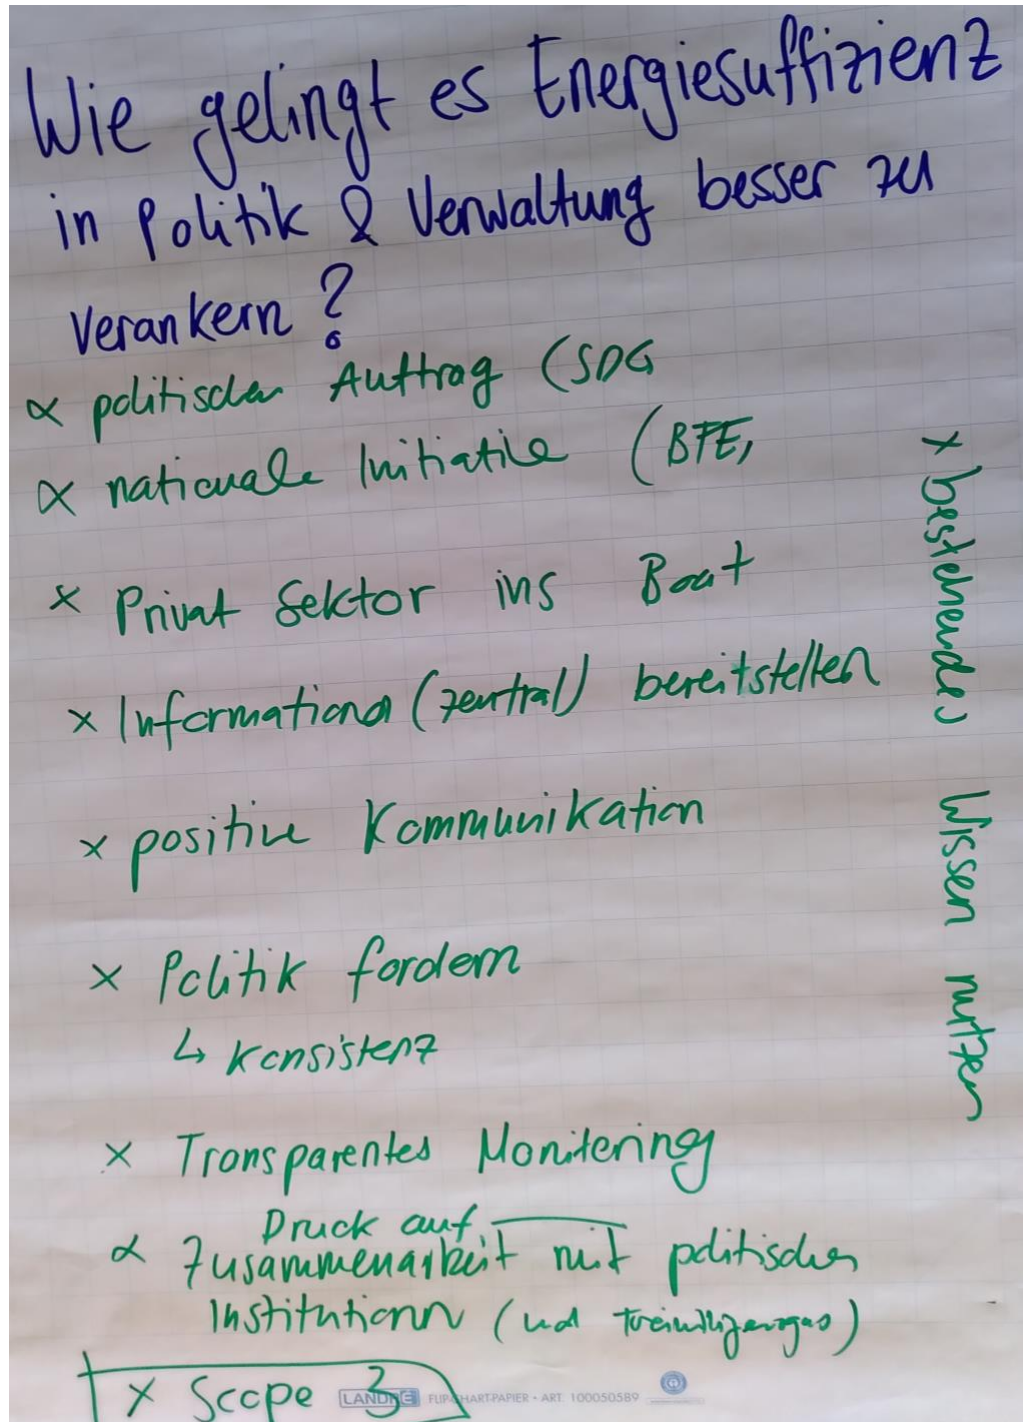 Wie gelingt es Energiesuffizienz
in Politik & Verwaltung besser zu
verankern?
x politischer Auftrag (SDG
x nationale Initiative (BFE,
x Privat Sektor ins Boot
x Informationen (zentral) bereitstellen
x positive Kommunikation
x Politik fordern
↳ Konsistenz
x Transparentes Monitoring
Druck auf
x Zusammenarbeit mit politischen
Institutionen (und
x Scope 3
x bestehendes Wissen nutzen
LANDRÉ FLIPCHART-PAPIER - ART. 100050589